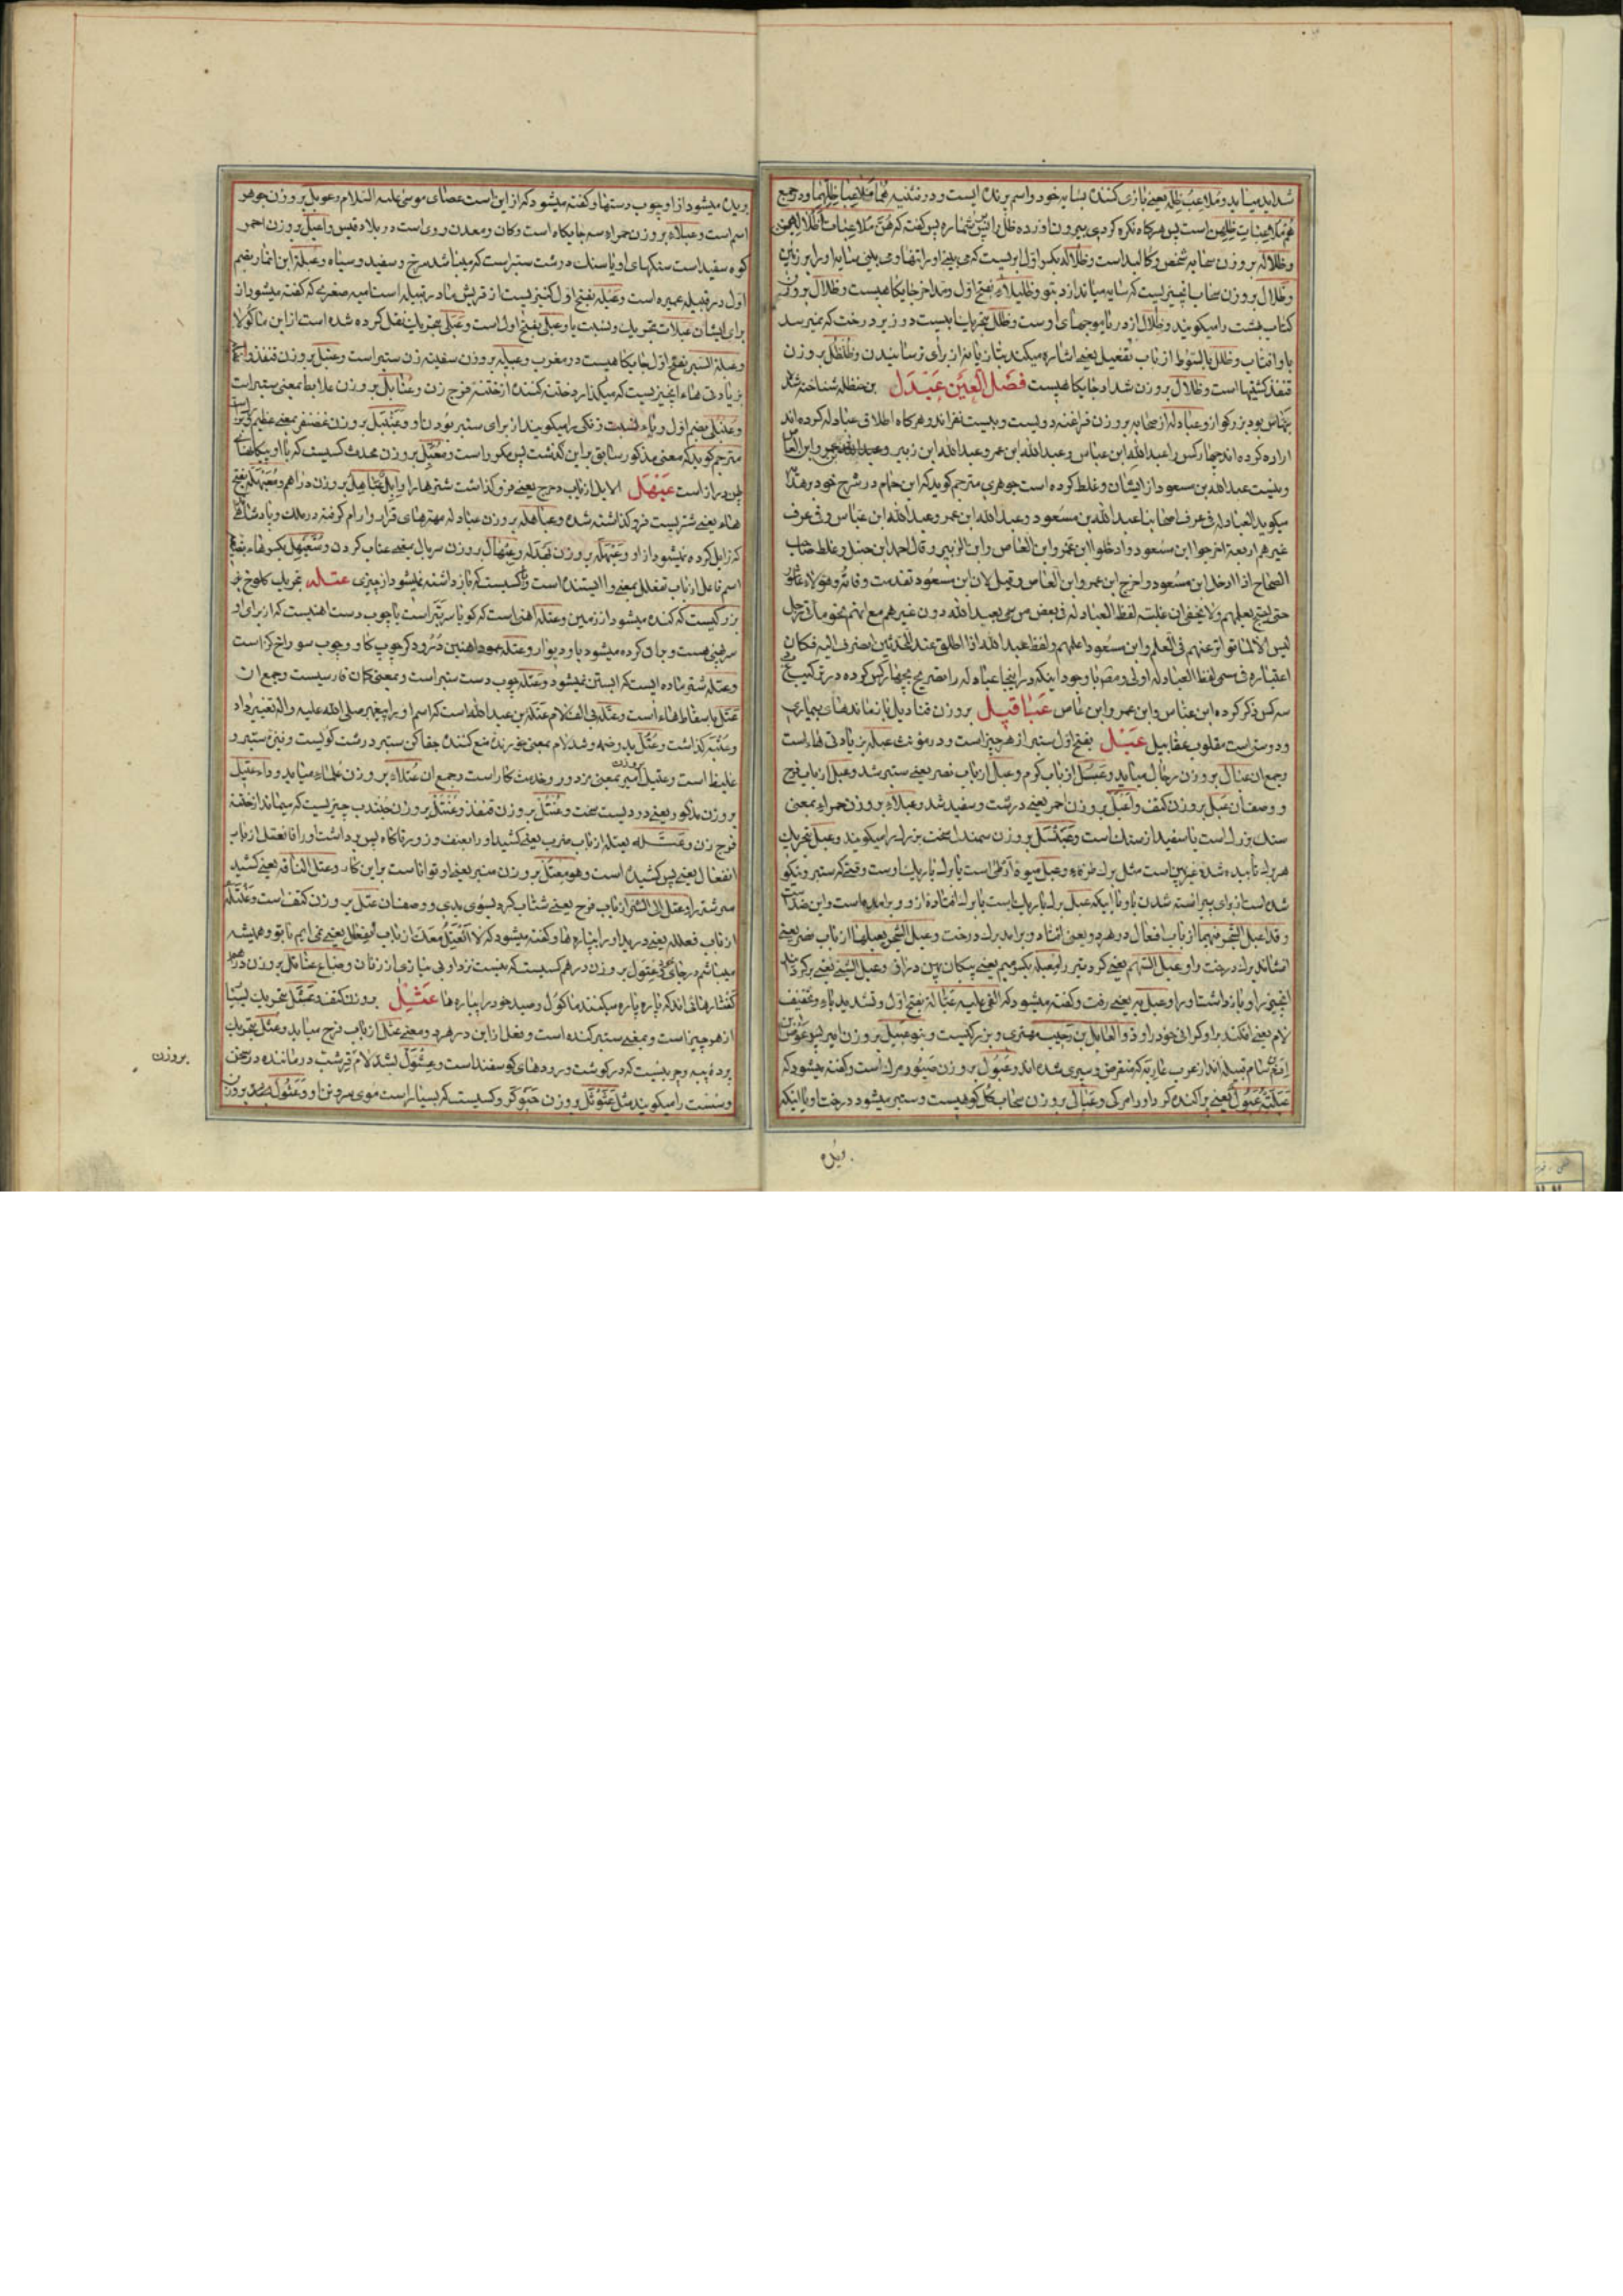 شداید میاید و ملاعب ظله یعنی بازی کننده بسایه خود و اسم پرنده ایست و در تثنیه هما ملاعبا ظلهما و در جمع
هن ملاعبات ظلهن است پس هرگاه نکره کردی بیرون اورده ظل را پس گفت که هن ملاعبات
و ظلاله بروزن سحابه شخص و کالبد است و ظلاله بکسر اول ابریست که می بینی او را تنها و می بینی سایه او را بر زمین
و ظلال بروزن سحاب انچیزیست که سایه میاندازد بتو و ظلیلاء بفتح اول و مد اخر جایگاهیست و ظلال بروزن
کتاب بهشت را میگویند و ظلال از دریا موجهای اوست و ظلل بتحریک ابیست در زیر درخت که نمیرسد
باو افتاب و ظلل بالسوط از باب تفعیل یعنی اشاره میکند بتازیانه از برای ترسانیدن و ظلظل بروزن
قنفذ کشتیها است و ظلال بروزن شداد جایگاهیست فصل العین عبدل بن حنظله شناخته شده
بود بزرگوار و عبادله از صحابه بروزن فراعنه دویست و بیست نفراند و هرگاه اطلاق عبادله کرده اند
اراده کرده اند چهار کس را عبدالله ابن عباس و عبدالله ابن عمر و عبدالله ابن زبیر و
و نیست عبدالله بن مسعود از ایشان و غلط کرده است جوهری مترجم گوید که ابن همام در شرح خود بر هدایه
میگوید العبادله فی عرف اصحابنا عبدالله بن مسعود و عبدالله ابن عمر و عبدالله ابن عباس و فی عرف
غیرهم اربعة اخرجوا ابن مسعود و ادخلوا ابن عمرو ابن العاص و ابن الزبیر و قال احمد ابن حنبل و غلط صاحب
الصحاح اذا ادخل ابن مسعود و اخرج ابن عمرو ابن العاص و قیل لان ابن مسعود تقدمت وفاته و هؤلاء عاشوا
حتی احتیج بعلمهم ولا یخفی ان غلبة لفظ العبادله فی بعض من سمی بعبدالله دون غیرهم مع انهم نحو مأتی رجل
لیس الا لما تواتر عنهم فی العلم و ابن مسعود اعلمهم و لفظ عبدالله اذا اطلق عند المحدثین انصرف الیه فکان
اعتباره فی مسمی لفظ العبادله اولی و مص با وجود اینکه در اینجا عبادله را تصریح بچهار کس کرده در ترکیب
سه کس ذکر کرده ابن عباس و ابن عمر و ابن عاص عباقیل بروزن قنادیل بازمانده های بیماری
و دوستی است مقلوب عقابیل عبل بفتح اول ستبر از هر چیز است و در مؤنث عبله بزیادتی هاء است
و جمع ان عبال بروزن رجال میاید و عبل از باب کرم و عبل از باب نصر یعنی ستبر شد و عبل از باب فرح
و وصف ان عبل بروزن کتف و اعبل بروزن احمر یعنی درشت و سفید شد و عبلاء بروزن حمراء بمعنی
سنک بزرک است یا سفید از سنک است و عبنبل بروزن سمندل سخت بزرک را میگویند و عبل بتحریک
هر برک تابیده شده غیر پهن است مثل برک طرفاء و عبل میوه ارطی است یا برک باریک اوست وقتی که ستبر و نیکو
شده است از برای پیراسته شدن باو یا اینکه عبل برک باریک است یا برک افتاده از او و برامده است و این ضد است
و قد اعبل الشجر فیهما از باب افعال در هر دو یعنی افتاد و برامد برک درخت و عبل الشجر یعبلها از باب نصر یعنی
افشاند برک درخت را و عبل السهم یعنی کرد تیر را معبله بکسر میم یعنی پیکان پهن دراز و عبل الشیء یعنی بر کردانید
انچیز را و بازداشت او را و عبل به یعنی رفت و گفته میشود که القی علیه عبالته بفتح اول و تشدید باء و تخفیف
لام یعنی افکند بر او کرانی خود را و ذو العابل بن رحیب مهتری و بزرگیست و بنو عبیل بروزن امیر
ارم بن سام قبیله اند از عرب عاربه که منقرض و سپری شده اند و عبول بروزن صبور مرک است و گفته میشود که
عبلته عبول یعنی پراکنده کرد او را مرکی و عبال بروزن سحاب گل کوهیست و ستبر میشود درخت او تا اینکه
بریده
بریده میشود از او چوب دستها و گفته میشود که از این است عصای موسی علیه السلام و عوبل بروزن جوهر
اسم است و عبلاء بروزن حمراء سه جایگاه است و کان و معدن روی است در بلاد قیس و اعبل بروزن احمر
کوه سفید است سنگهای او یا سنک درشت ستبر است که میباشد سرخ و سفید و سیاه و عبلة ابن انمار بضم
اول در قبیله عمیره است و عبله بفتح اول کنیزیست از قریش مادر قبیله است امیه صغری که گفته میشود از
برای ایشان عبلات بتحریک و نسبت باو عبلی بفتح اول است و عبلی بتحریک نقل کرده شده است از ابن ماکولا
و عبلة السیر بفتح اول جایگاهیست در مغرب و عبیله بروزن سفینه زن ستبر است و عنبل بروزن قنفذ و
بزیادتی هاء انچیزیست که میگذارد ختنه کننده از ختنه فرج زن و عنابل بروزن علابط بمعنی ستبر است
و عنبلی بضم اول و یاء نسبت زنکی را میگویند از برای ستبر بودن او و عبنبل بروزن غضنفر بمعنی عظیم و
مترجم گوید که معنی مذکور سابق بر این گذشت پس مکرر است و معبل بروزن محدث کسیست که با او پیکانهای
پهن دراز است عبهل الابل از باب دحرج یعنی فرو گذاشت شترها را و ابل عباهل بروزن دراهم و معبهله بفتح
هاء یعنی شتریست فرو گذاشته شده و عباهله بروزن عبادله مهترهای قرار و ارام گرفته در ملک و پادشاهی
که زایل کرده نمیشود از او و عبهله بروزن و عبهال بروزن سربال بمعنی عتاب کردن و متعبهل بکسر هاء بصیغه
اسم فاعل از باب تفعلل بمعنی وا ایستنده است و انکسیست که بازداشته نمیشود از چیزی عتله بتحریک کلوخ
بزرگیست که کنده میشود از زمین و عتله اهنی است که گویا سر تبر است یا چوب دست اهنیست که از برای او
سر پهنی هست و ویران کرده میشود باو دیوار و عتله عمود اهنین و درودگر چوب کاو و چوب سوراخ کن است
و عتله شتر ماده ایست که ابستن نمیشود و عتله چوب دست ستبر است و بمعنی کمان فارسیست و جمع ان
عتل باسقاط هاء است و عتله بی الف لام عتلة بن عبدالله است که اسم او را پیغمبر صلی الله علیه واله تغییر داد
و عتبه گذاشت و عتل بدو ضمه و شد لام بمعنی خورنده منع کننده جفا کن ستبر درشت گویست و نیزه ستبر و
غلیظ است و عتیل بروزن امیر بمعنی مزدور و خدمتکار است و جمع ان عتلاء بروزن علماء میاید و داء عتیل
بروزن مذکور یعنی دردیست سخت و عنتل بروزن قنفذ و عنتل بروزن جندب چیزیست که میماند از ختنه
فرج زن و عتله یعتله از باب ضرب یعنی کشید او را بعنف و زور ناگاه پس برداشت او را فانعتل از باب
انفعال یعنی پس کشیده است و هو معتل بروزن منبر یعنی او تواناست بر این کار و عتل الناقة یعنی کشید
سر شتر را و عتل الی الشر از باب فرح یعنی شتاب کرد بسوی بدی و وصف ان عتل بروزن کتف است و عنتله
از باب فعلله یعنی درید او را بپاره ها و گفته میشود که لا انعتل معک از باب انفعال یعنی نمی ایم با تو و همیشه
میباشم در جای خود و عتول بروزن درهم کسیست که نیست نزد او بی نیازی از زنان و ضباع عناتل بروزن
کفتارهائی اند که پاره پاره میکنند ماکول و صید خود را بپاره ها عثل بروزن کتف و عثل بتحریک بسیار
از هر چیز است و بمعنی ستبر کنده است و فعل از این در هر دو معنی عثل از باب فرح میاید و عثل بتحریک
پرده پیه و چربیست که در گوشت و روده های گوسفند است و عثول بشد لام قرشب درمانده در سخن
و سست را میگویند مثل عثوثل بروزن حبوکر و کسیست که بسیار است موی سر و تن او و عثول بروزن
بروزن